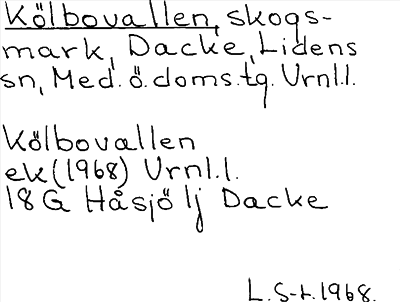 Kölbovallen, skogs-
mark, Dacke, Lidens
sn, Med. ö. doms.tg. Urnl.l.
Kölbovallen
ek (1968) Urnl.l.
18 G Håsjö lj Dacke
L. S-t. 1968.